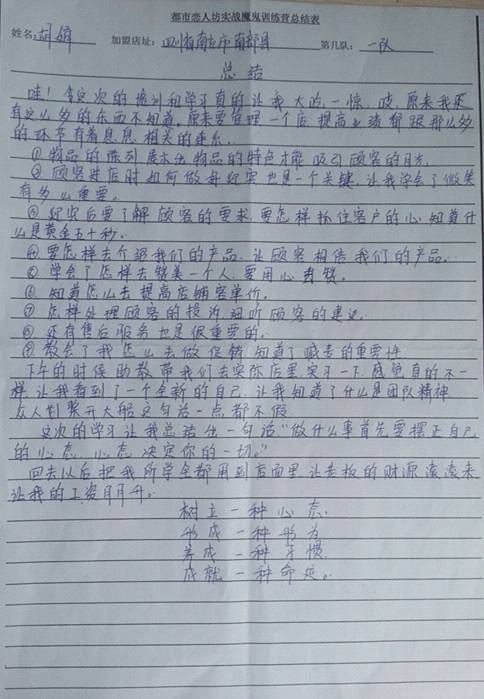 都市恋人坊实战魔鬼训练营总结表
姓名:胡娟 加盟店址:四川省南充市南部县 第几队:一队
总结
哇!食这次的培训和学习真的让我大吃一惊,哎,原来我还
有这么多的东西不知道,原来要管理一个店,提高业绩都跟那么多
的环节有着息息相关的连乐.
①物品的陈列展示出物品的特色才能吸引顾客的目光.
②顾客进店时如何做每迎宾也是一个关键.让我学会了微笑
有多么重要。
③迎宾后要了解顾客的要求.要怎样抓住客户的心.知道什
么是黄金五十秒.
④要怎样去介绍我们的产品.让顾客相信我们的产品。
⑤学会了怎样去赞美一个人,要用心去赞.
⑥知道怎么去提高店铺客单价。
⑦怎样处理顾客的投诉细听顾客的建议.
⑧还有售后服务也是很重要的.
⑨教会了我怎么去做促销.知道了喊麦的重要性
下午的时候助教带我们去实际店里实习一下.感觉真的不一
样.让我看到了一个全新的自己.让我知道了什么是团队精神
众人划桨开大船这句话一点都不假
这次的学习让我总结出一句话"做什么事首先要摆正自己
的心态,心态决定你的一切."
回去以后把我所学全都用到店面里.让老板的财源滚滚来
让我的工资月月升。
树立一种心态.
形成一种形为
养成一种习惯
成就一种命运。